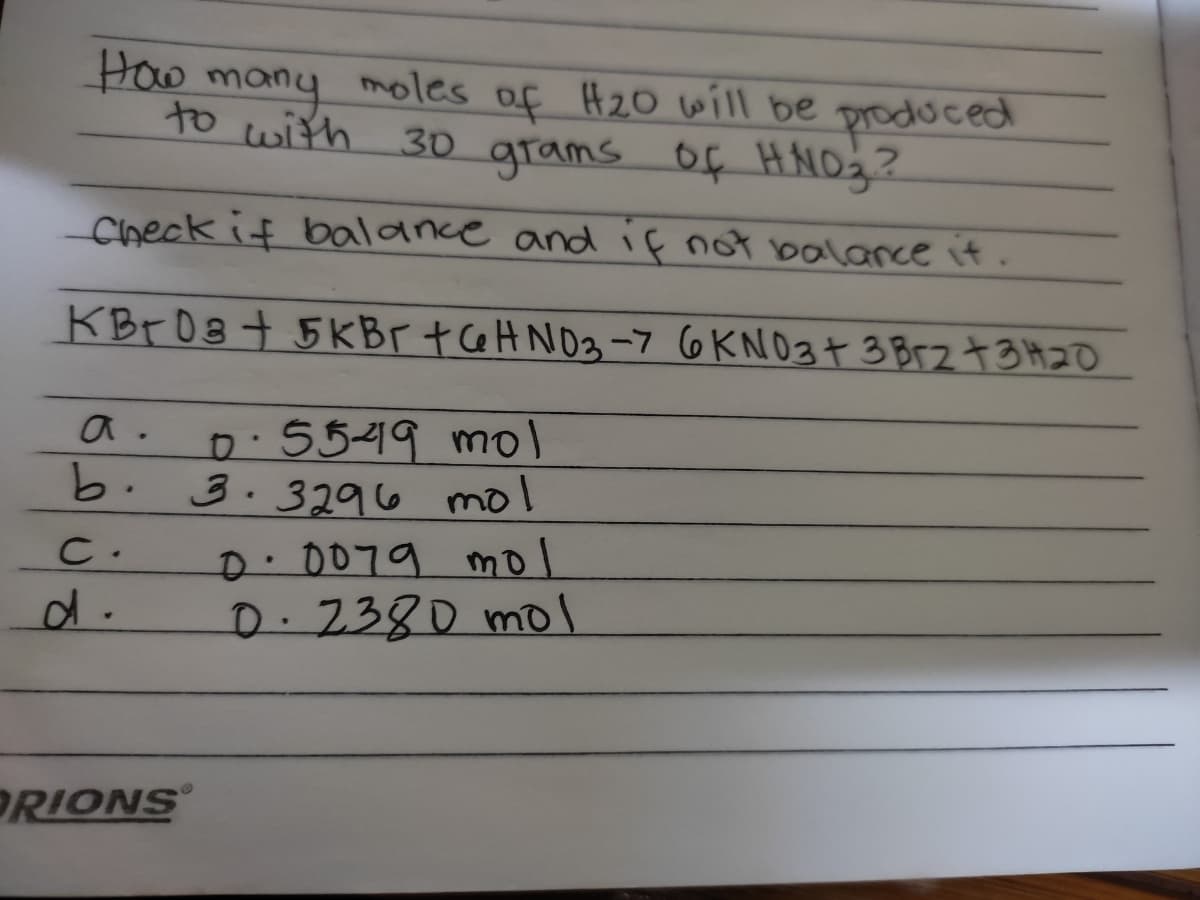 How many moles of H20 will be produced
to with 30 grams of HNO3?
Check if balance and if not balance it.
KBrO3 + 5KBr + 6HNO3 -> 6KNO3 + 3Br2 + 3H20
a. 0.5549 mol
b. 3.3296 mol
c. 0.0079 mol
d. 0.2380 mol
ORIONS®